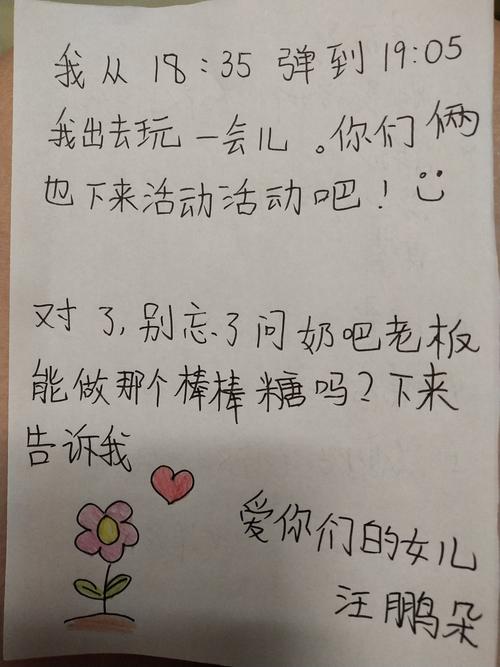 我从 18:35 弹到 19:05
我出去玩一会儿。你们俩
也下来活动活动吧！
对了,别忘了问奶吧老板
能做那个棒棒糖吗？下来
告诉我
爱你们的女儿
汪鹏朵